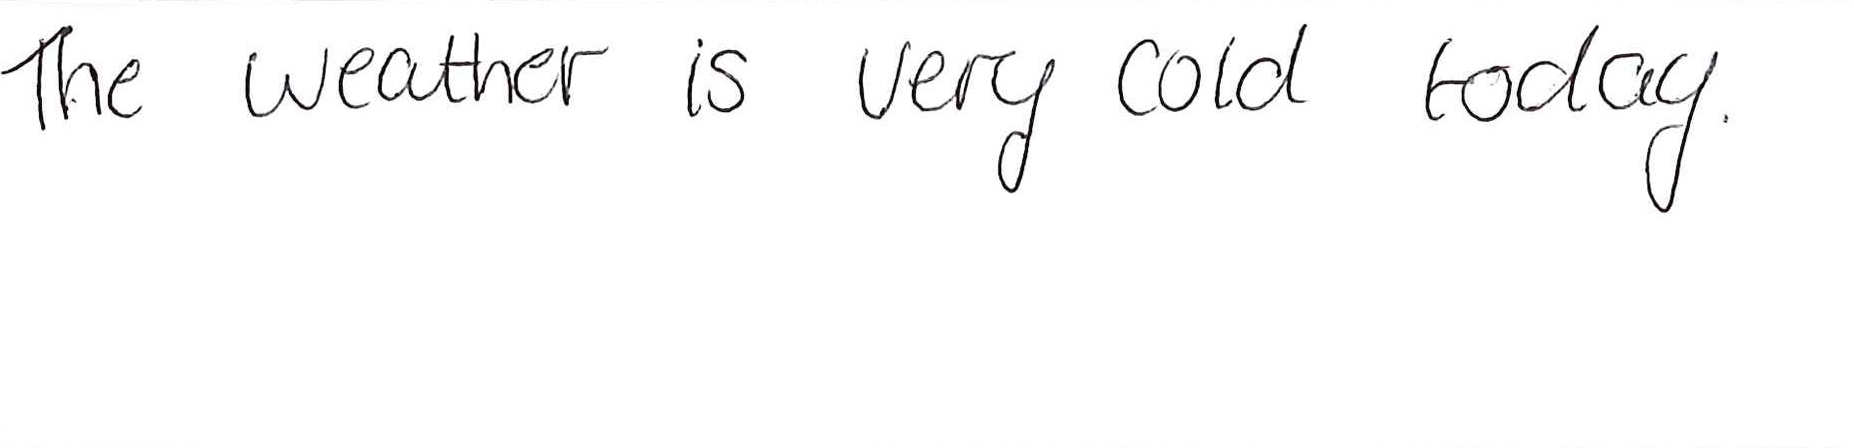 The weather is very cold today.